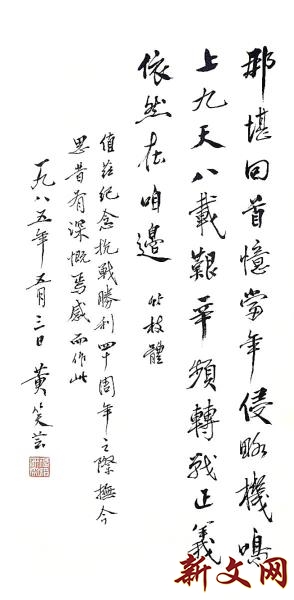 那堪回首憶當年侵略機鳴
上九天八載艱辛頻轉戰正義
依然在咱邊 竹枝體
值茲紀念抗戰勝利四十周年之際撫今
思昔有深慨焉感而作此
一九八五年五月三日 黄笑芸
新文网